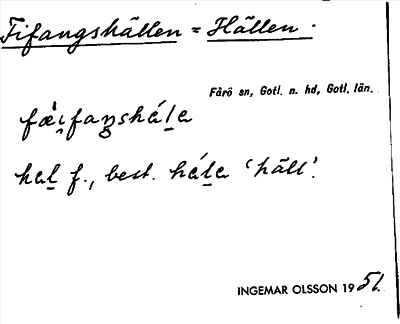 Fifangshällen = Hällen.
Fårö sn, Gotl. n. hd, Gotl. län.
fæ̀i̯faŋshάl̠a
hal̠ f., best. hάl̠a 'häll'.
INGEMAR OLSSON 1951.